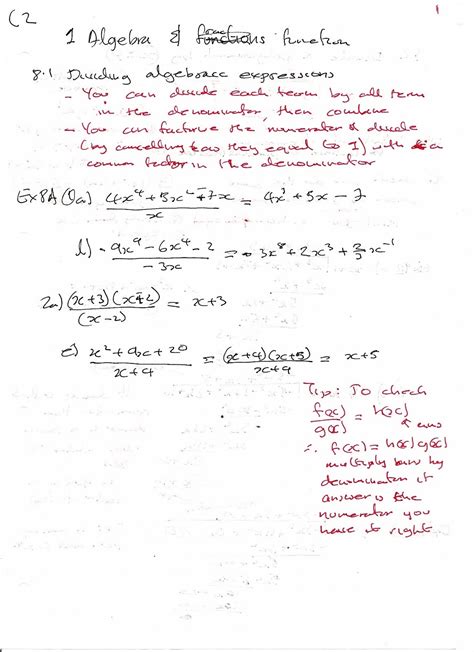 C2
1
1 Algebra & functions function
8.1 Dividing algebraic expressions
- You can divide each term by all term
in the denominator, then combine
- You can factorise the numerator & divide
(by cancelling as they equal to 1) with a
common factor in the denominator
Ex 8A (1)a) (4x⁴ + 5x² - 7x)/x = 4x³ + 5x - 7
l) (-9x⁹ - 6x⁴ - 2)/(-3x) = 3x⁸ + 2x³ + 2/3 x⁻¹
2a) (x+3)(x-2)/(x-2) = x+3
c) (x² + 9x + 20)/(x+4) = (x+4)(x+5)/(x+4) = x+5
Tip: To check
f(x)/g(x) = h(x)
ans
∴ f(x) = h(x)g(x)
multiply by
denominator if
answer is the
numerator you
have it right